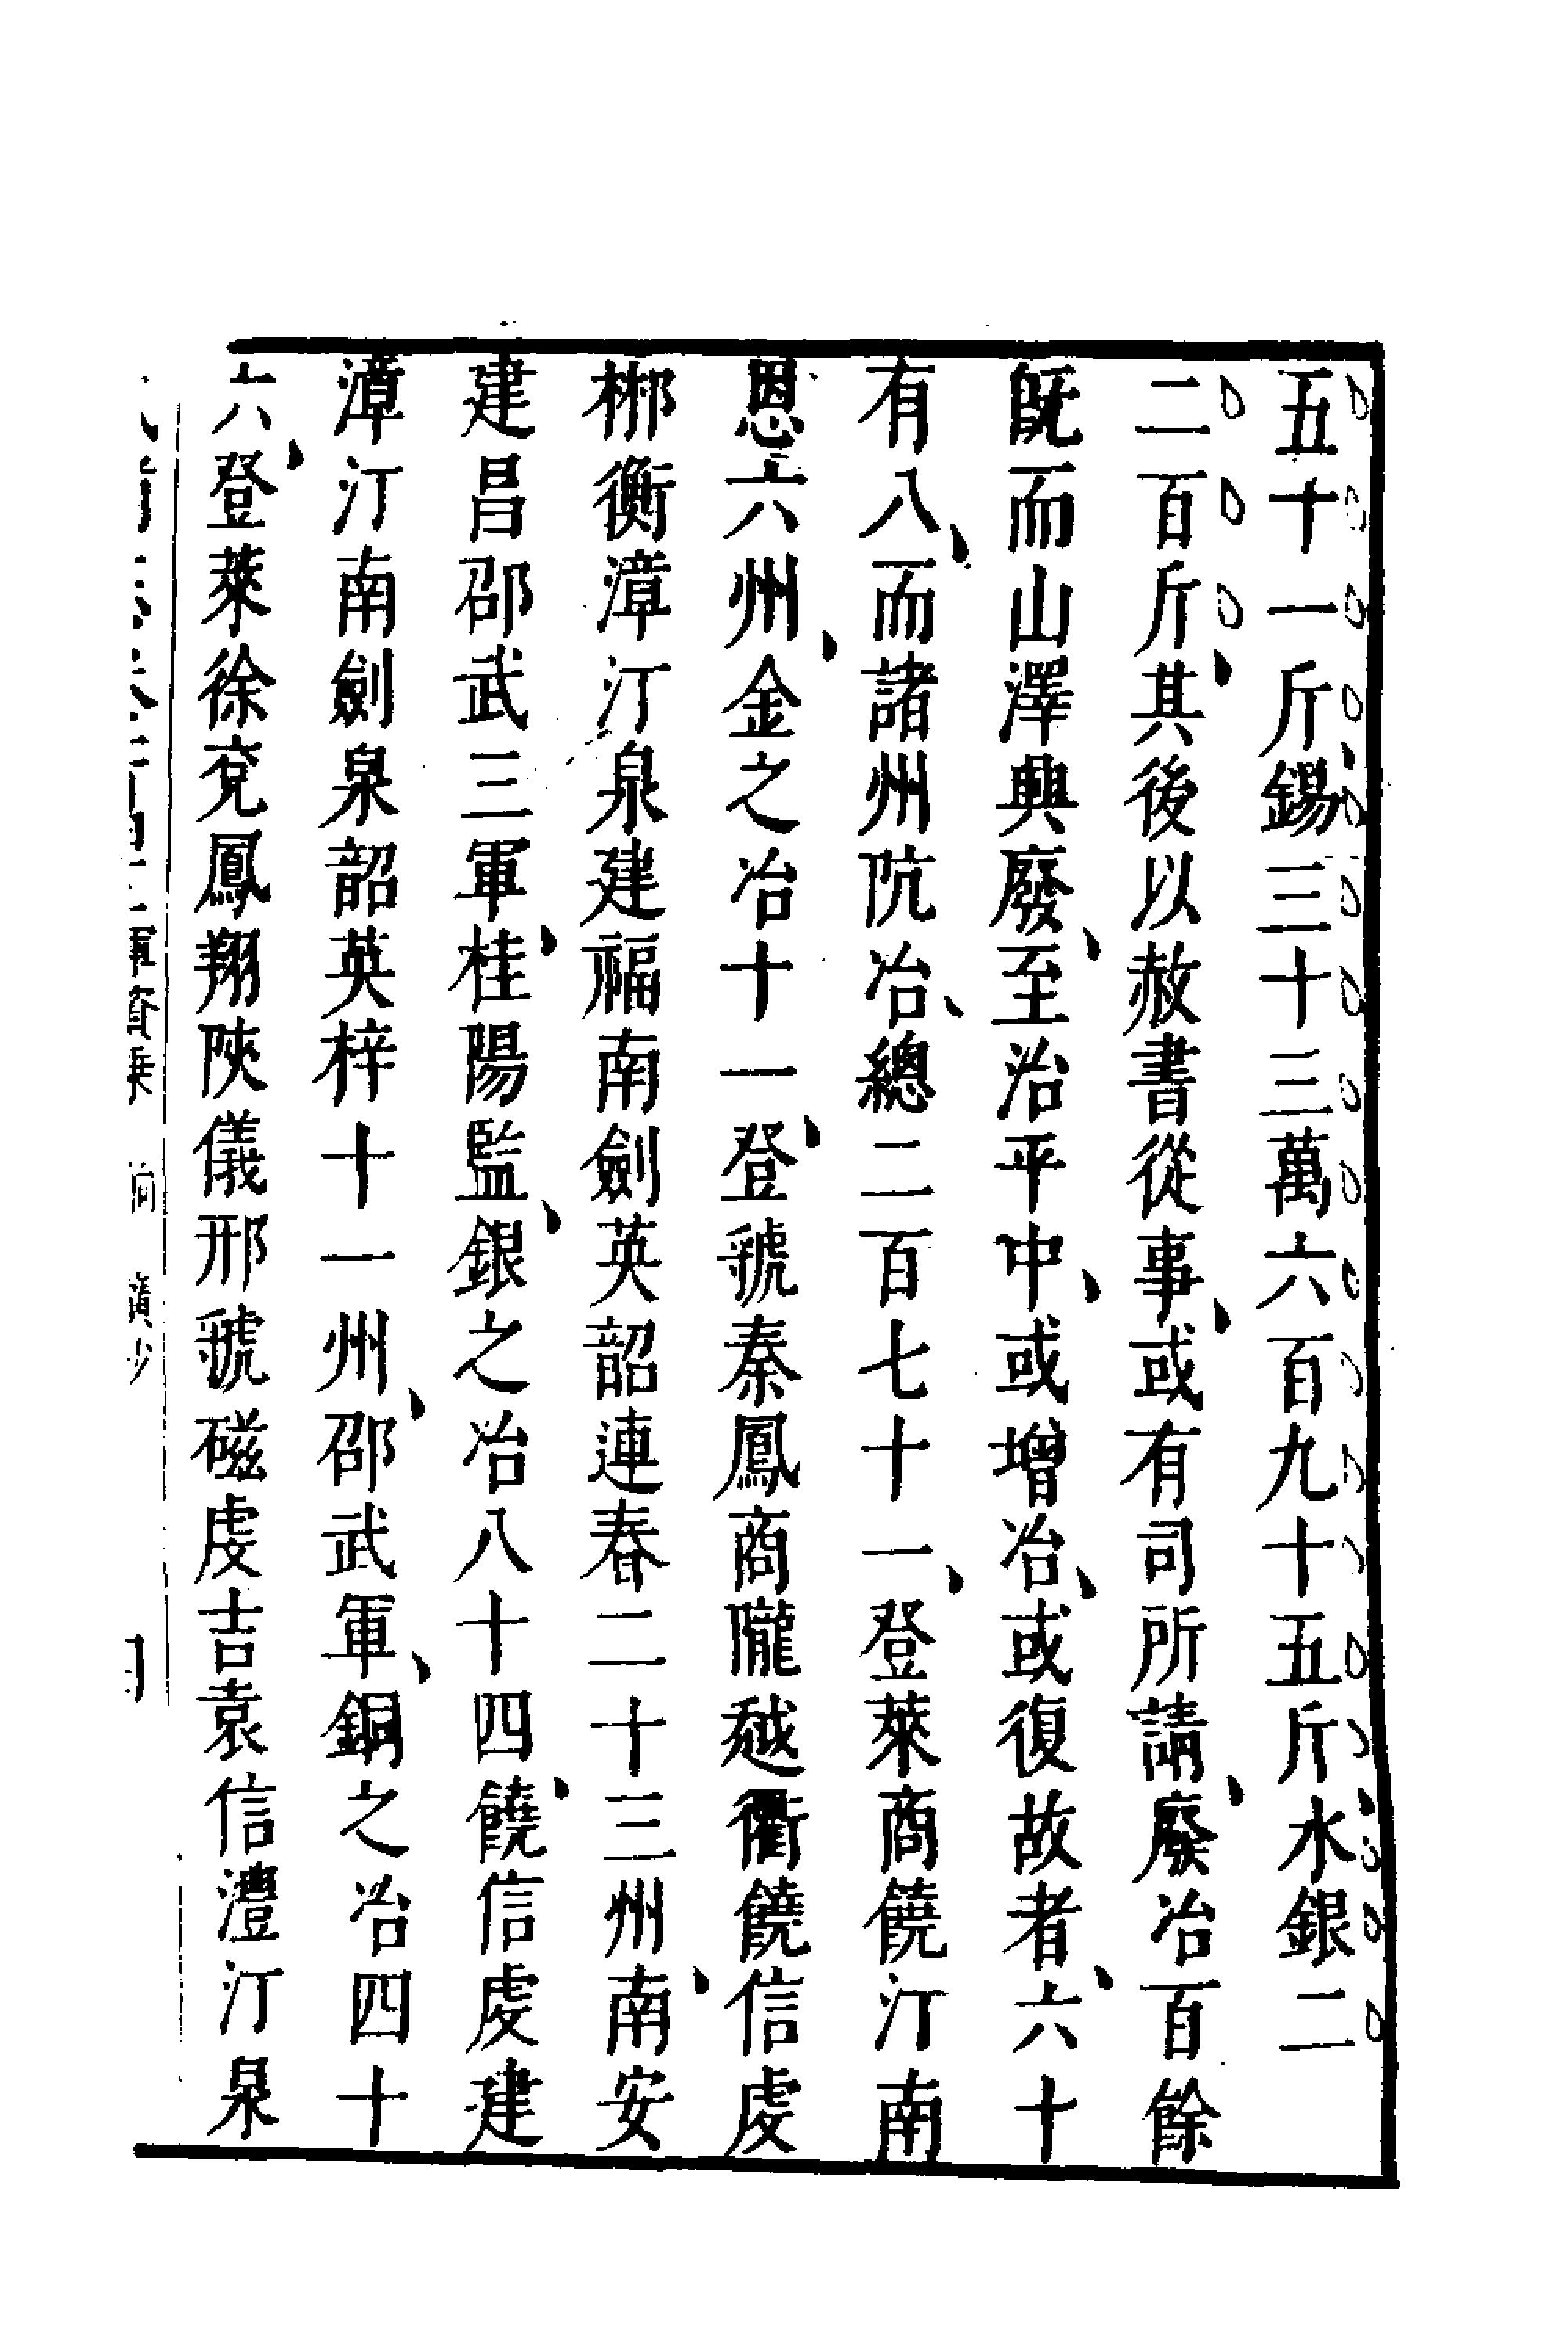 五十一斤錫三十三萬六百九十五斤水銀二
二百斤其後以赦書從事或有司所請廢冶百餘
旣而山澤興廢至治平中或增冶或復故者六十
有八而諸州阬冶總二百七十一登萊商饒汀南
恩六州金之冶十一登虢秦鳳商隴越衢饒信虔
郴衡漳汀泉建福南劍英韶連春二十三州南安
建昌邵武三軍桂陽監銀之冶八十四饒信虔建
漳汀南劍泉韶英梓十一州邵武軍銅之冶四十
六登萊徐兗鳳翔陝儀邢虢磁虔吉袁信澧汀泉